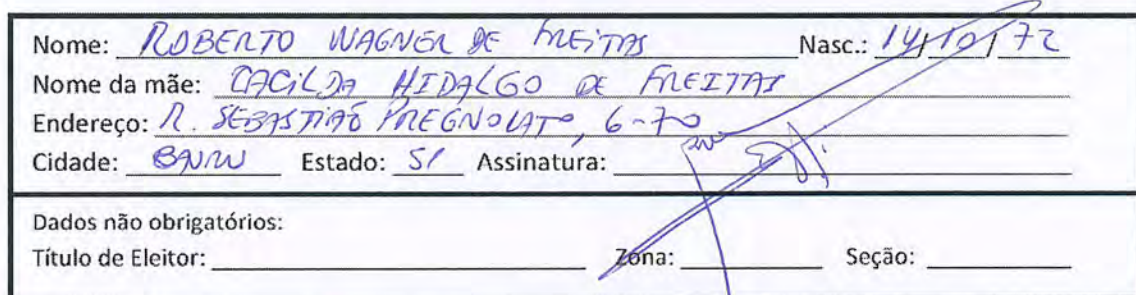 Nome: ROBERTO WAGNER DE FREITAS Nasc.: 14/10/72
Nome da mãe: CACILDA HIDALGO DE FREITAS
Endereço: R. SEBASTIÃO PREGNOLATO, 6-70
Cidade: BAURU Estado: SP Assinatura:
Dados não obrigatórios:
Título de Eleitor: Zona: Seção: